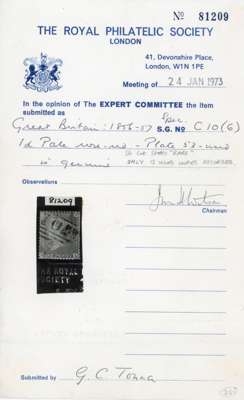 Nº 81209
THE ROYAL PHILATELIC SOCIETY
LONDON
41, Devonshire Place,
London, W1N 1PE
Meeting of 24 JAN 1973
In the opinion of The EXPERT COMMITTEE the item
submitted as
Spec.
Great Britain: 1856-57 S.G. Nº C10(6)
1d Pale rose-red - Plate 52 - used
is genuine
Observations
Chairman
81209
THE ROYAL
SOCIETY
Submitted by G. C. Tonna